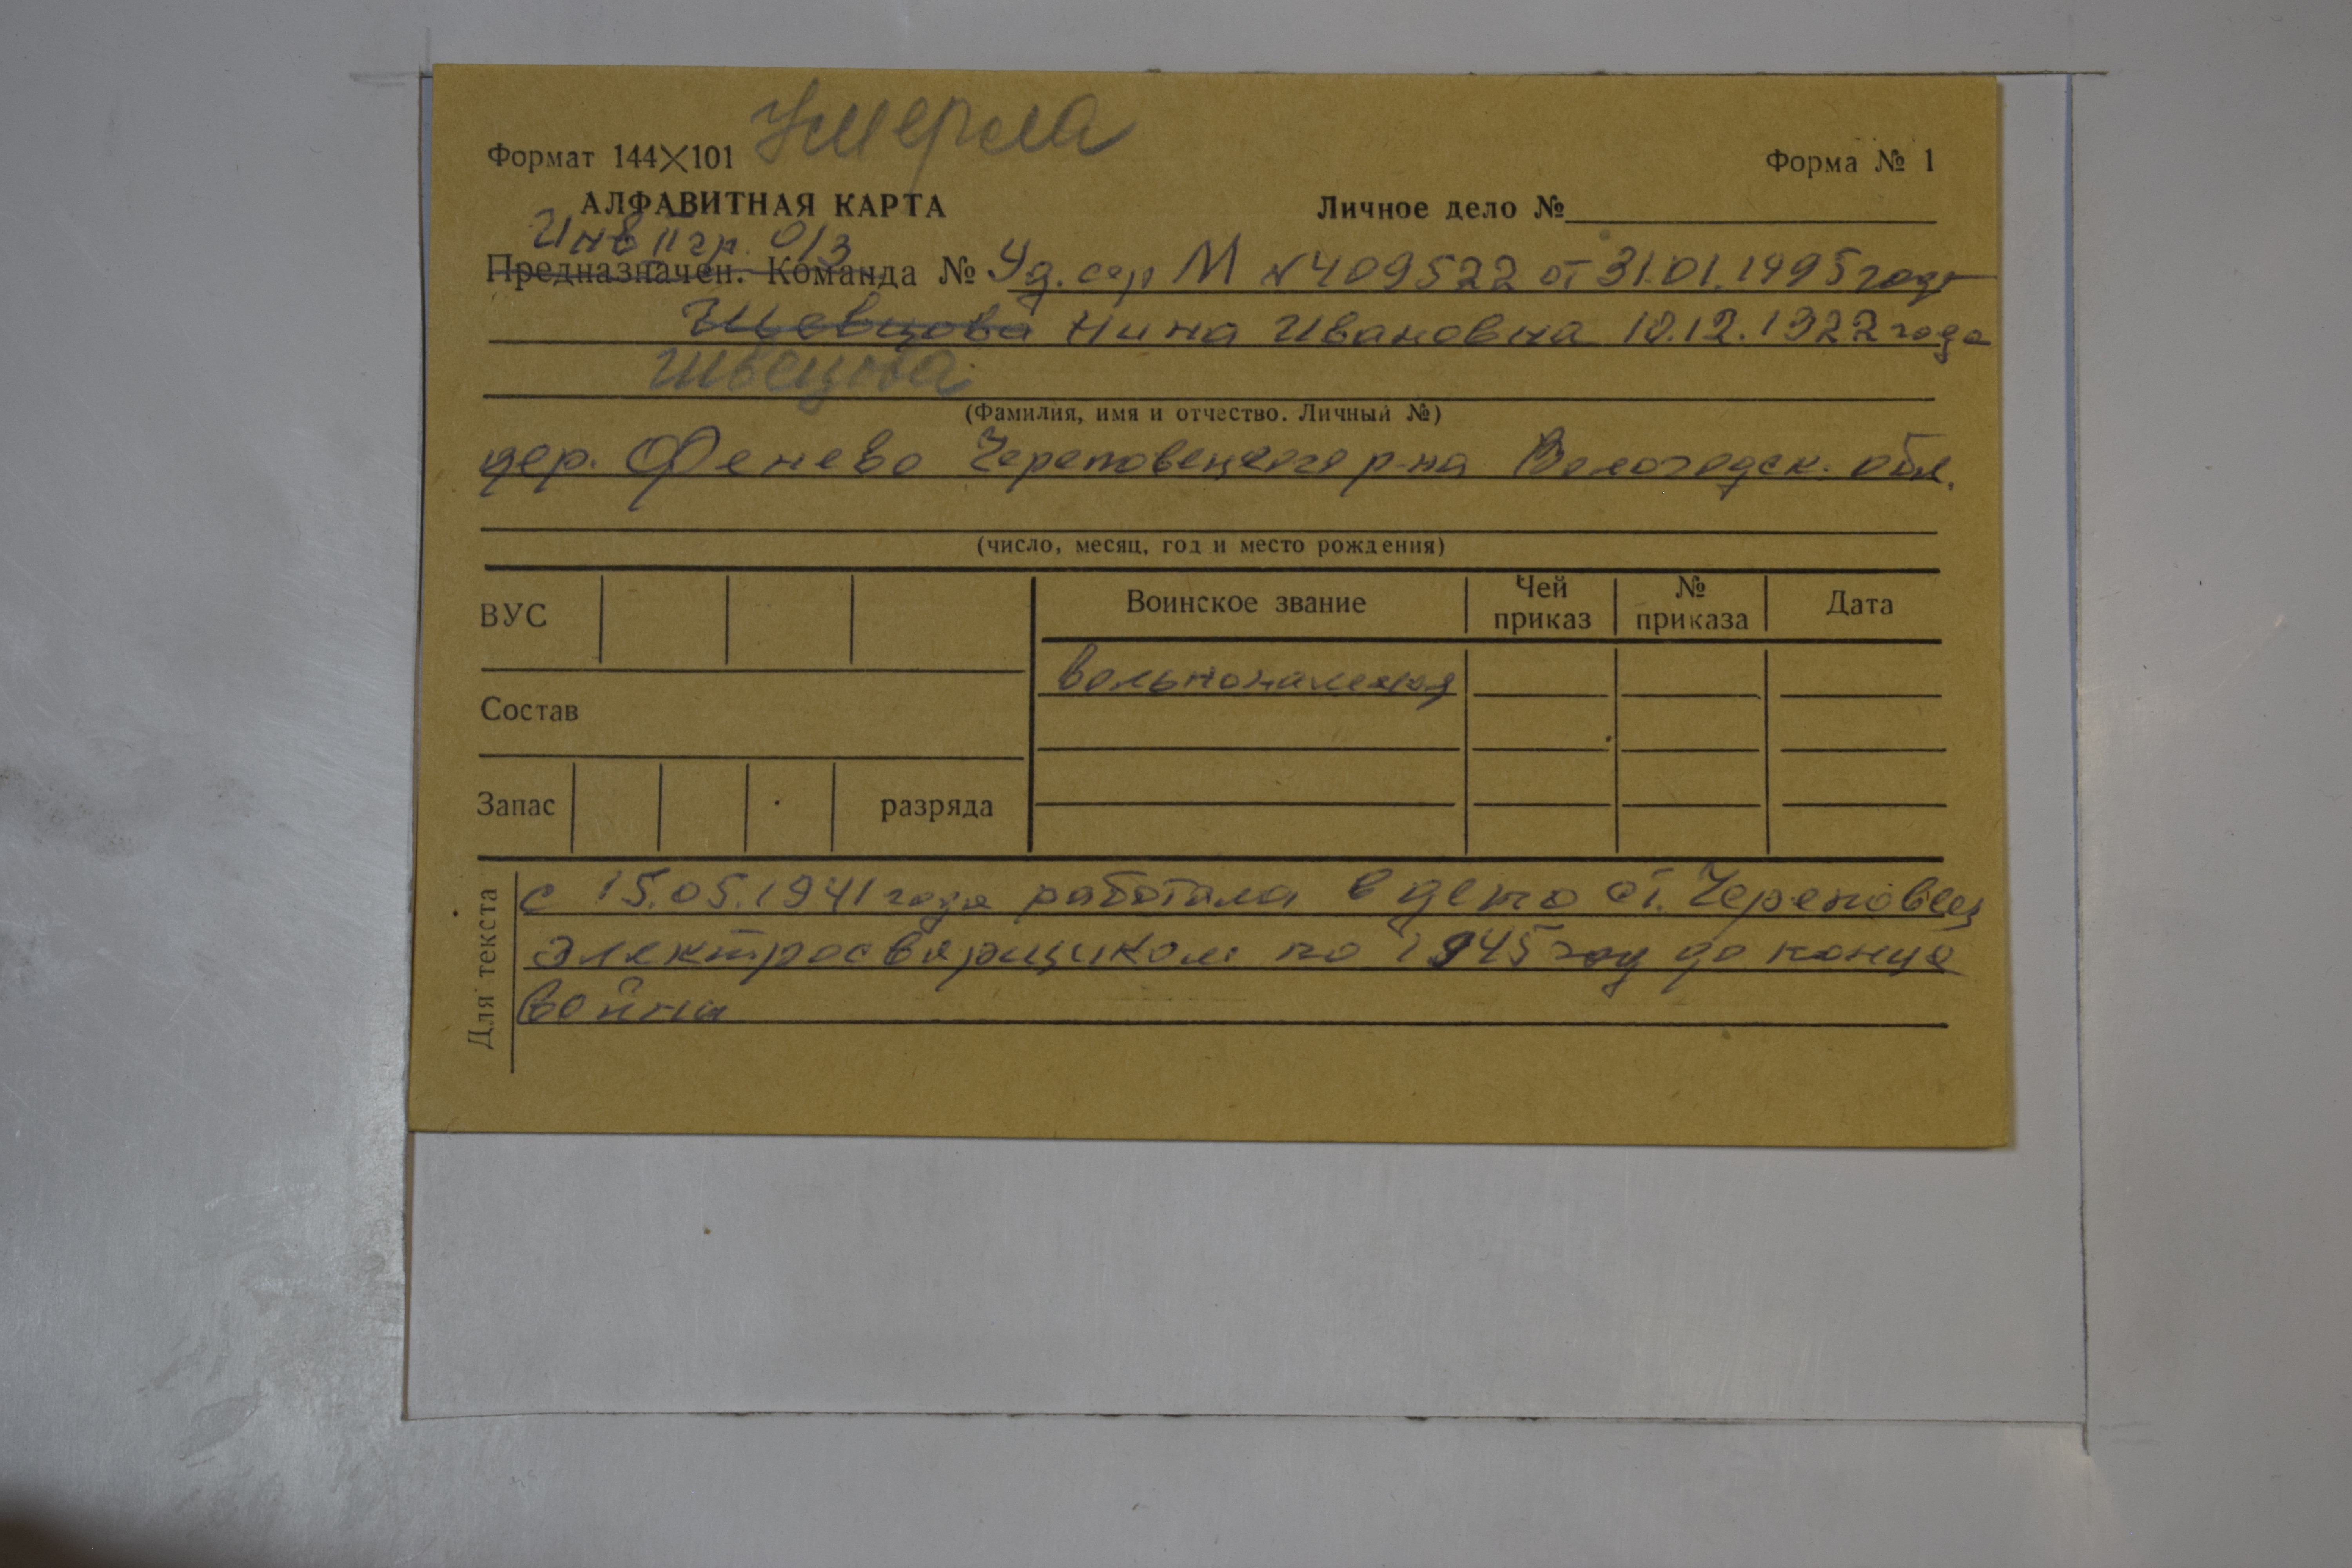 Умерла
Формат 144×101
Форма № 1
АЛФАВИТНАЯ КАРТА
Личное дело №
Инв II гр. о/з
Предназначен. Команда № Уд. сер М №409522 от 31.01.1995 года
Шевцова Нина Ивановна 10.12.1922 года
Швецова
(Фамилия, имя и отчество. Личный №)
дер. Фенево Череповецкого р-на Вологодск. обл.
(число, месяц, год и место рождения)
ВУС
Воинское звание
Чей приказ
№ приказа
Дата
вольнонаемная
Состав
Запас
разряда
Для текста
с 15.05.1941 года работала в депо ст. Череповец
электросварщиком по 1945 год до конца
войны